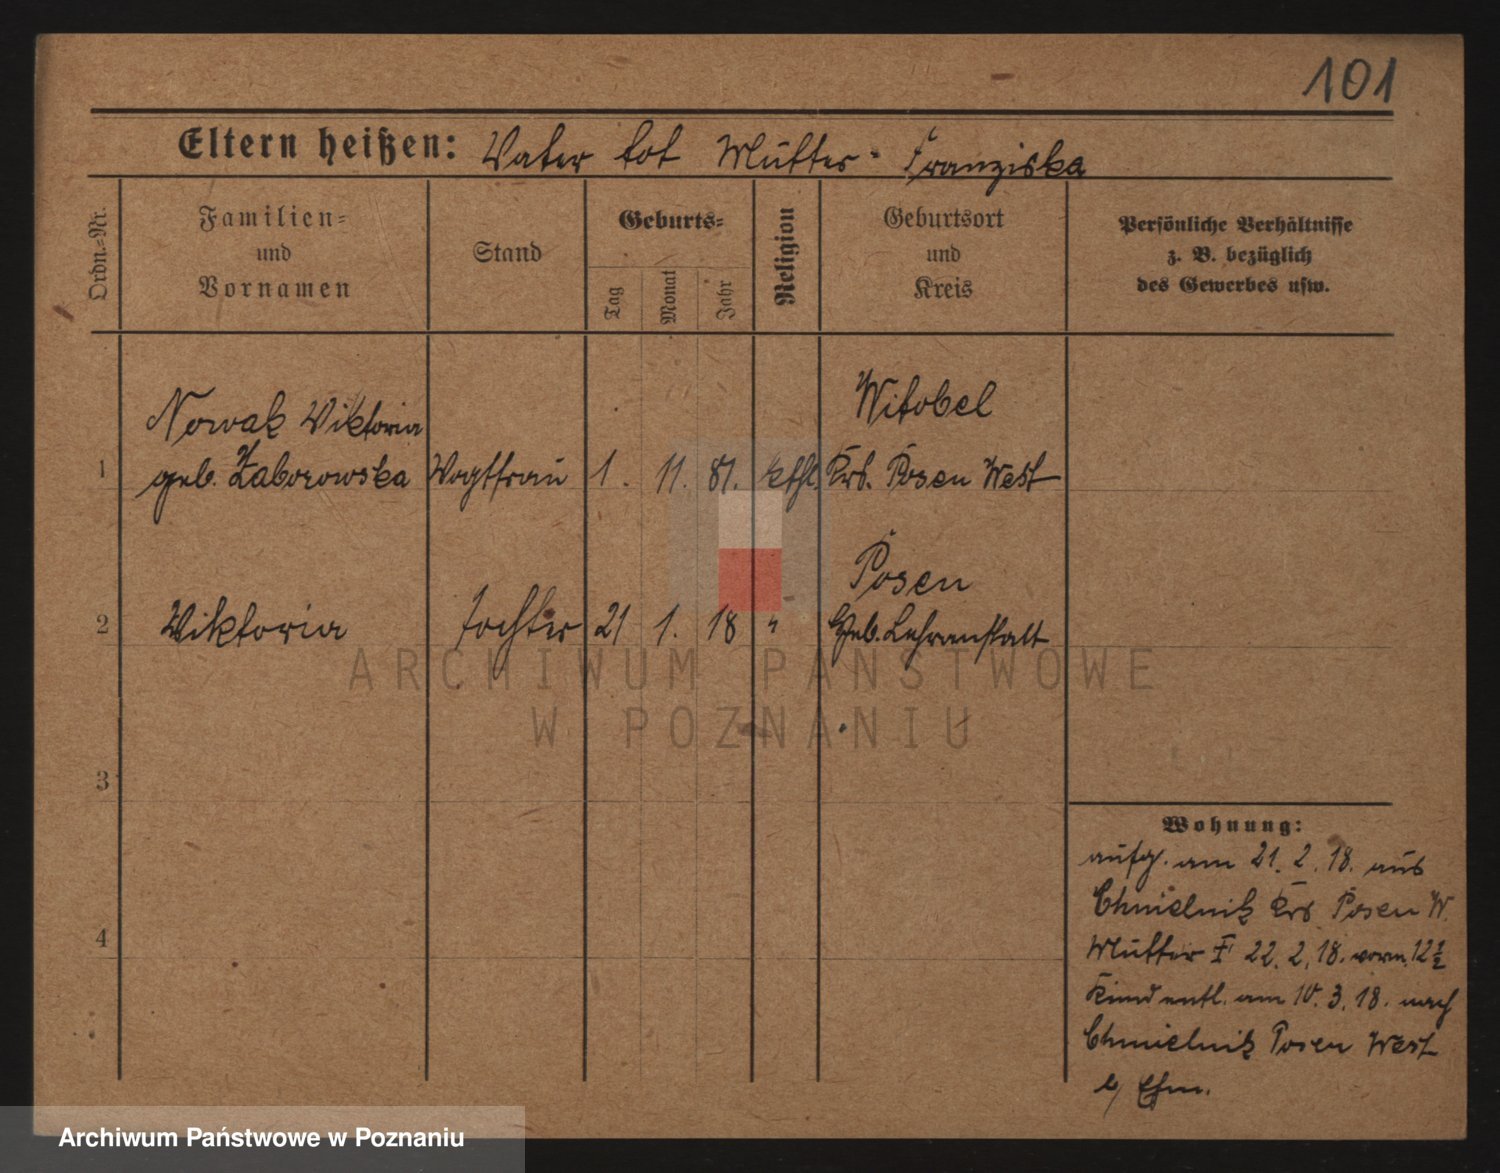 101
Eltern heißen: Vater tot Mutter Franziska
Ordn.-Nr.
Familien-
und
Vornamen
Stand
Geburts-
Tag
Monat
Jahr
Religion
Geburtsort
und
Kreis
Persönliche Verhältnisse
z. B. bezüglich
des Gewerbes usw.
Nowak Viktoria
Witobel
1 geb. Zaborowska Vogtfrau 1. 11. 81. kthl. Krs. Posen West
Posen
2 Viktoria Tochter 21 1. 18 " Heb. Lehranstalt
3
4
Wohnung:
aufg. am 21. 2. 18. aus
Chmielnik Krs Posen W.
Mutter † 22. 2. 18. vorm. 12½
Kind entl. am 10. 3. 18. nach
Chmielnik Posen West
z/ Ehm.
ARCHIWUM PAŃSTWOWE
W POZNANIU
Archiwum Państwowe w Poznaniu